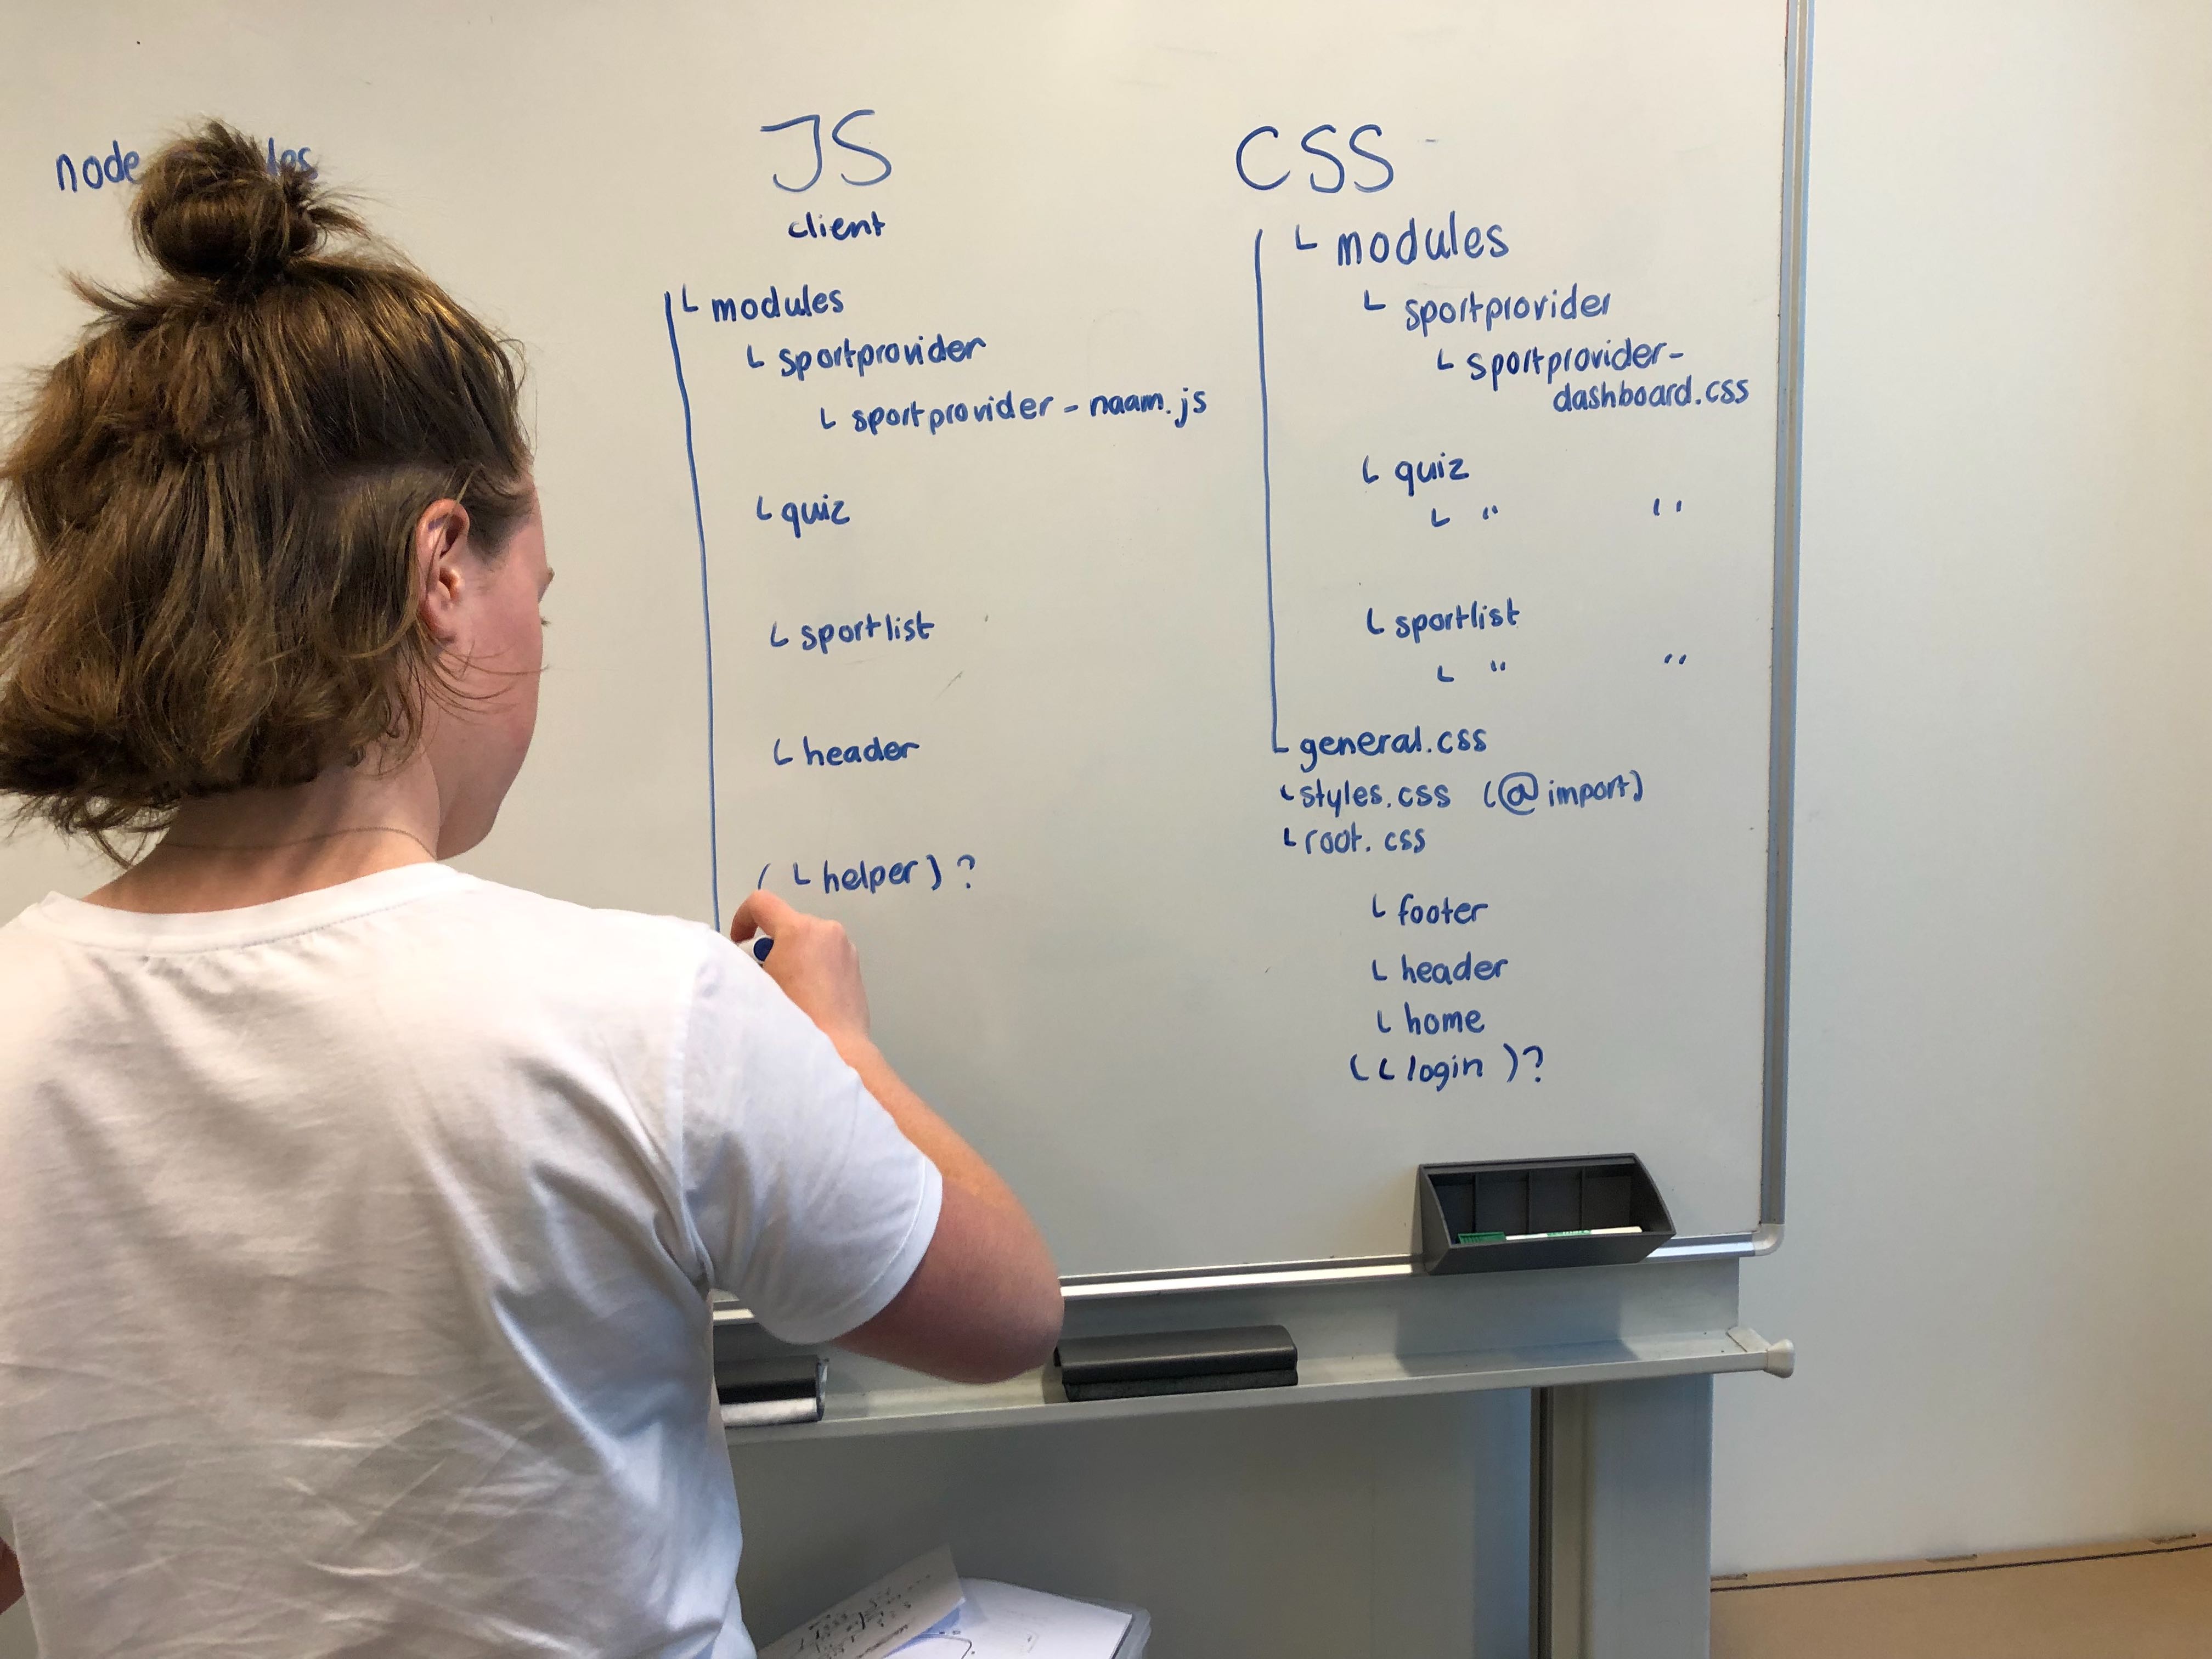 node
JS
client
└ modules
└ sportprovider
└ sportprovider - naam.js
└ quiz
└ sportlist
└ header
( └ helper ) ?
CSS
└ modules
└ sportprovider
└ sportprovider-
dashboard.css
└ quiz
└ " "
└ sportlist
└ " "
└ general.css
└ styles.css (@import)
└ root.css
└ footer
└ header
└ home
( └ login ) ?